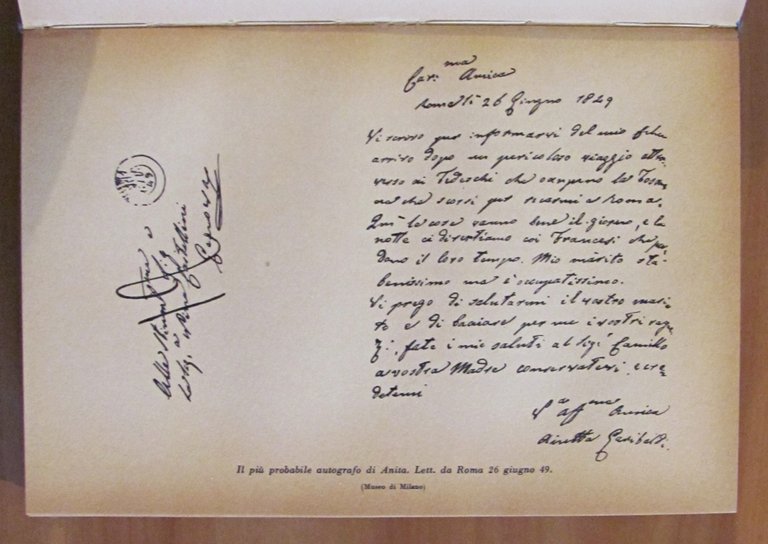 Car.ma Amica
Roma li 26 Giugno 1849
Vi scrivo per informarvi del mio felice
arrivo dopo un pericoloso viaggio attra-
verso ai Tedeschi che occupano la Tosca-
na che scorsi per recarmi a Roma.
Qui le cose vanno bene il giorno, e la
notte ci divertiamo coi Francesi che per-
dono il loro tempo. Mio marito stà
benissimo ma è occupatissimo.
Vi prego di salutarmi il vostro mari-
to e di baciare per me i vostri ragaz-
zi, fate i miei saluti al Sig.r Camillo
a vostra Madre conservatevi, e cre-
detemi
V.a aff.ma Amica
Annetta Garibaldi
Genova
Il più probabile autografo di Anita. Lett. da Roma 26 giugno 49.
(Museo di Milano)